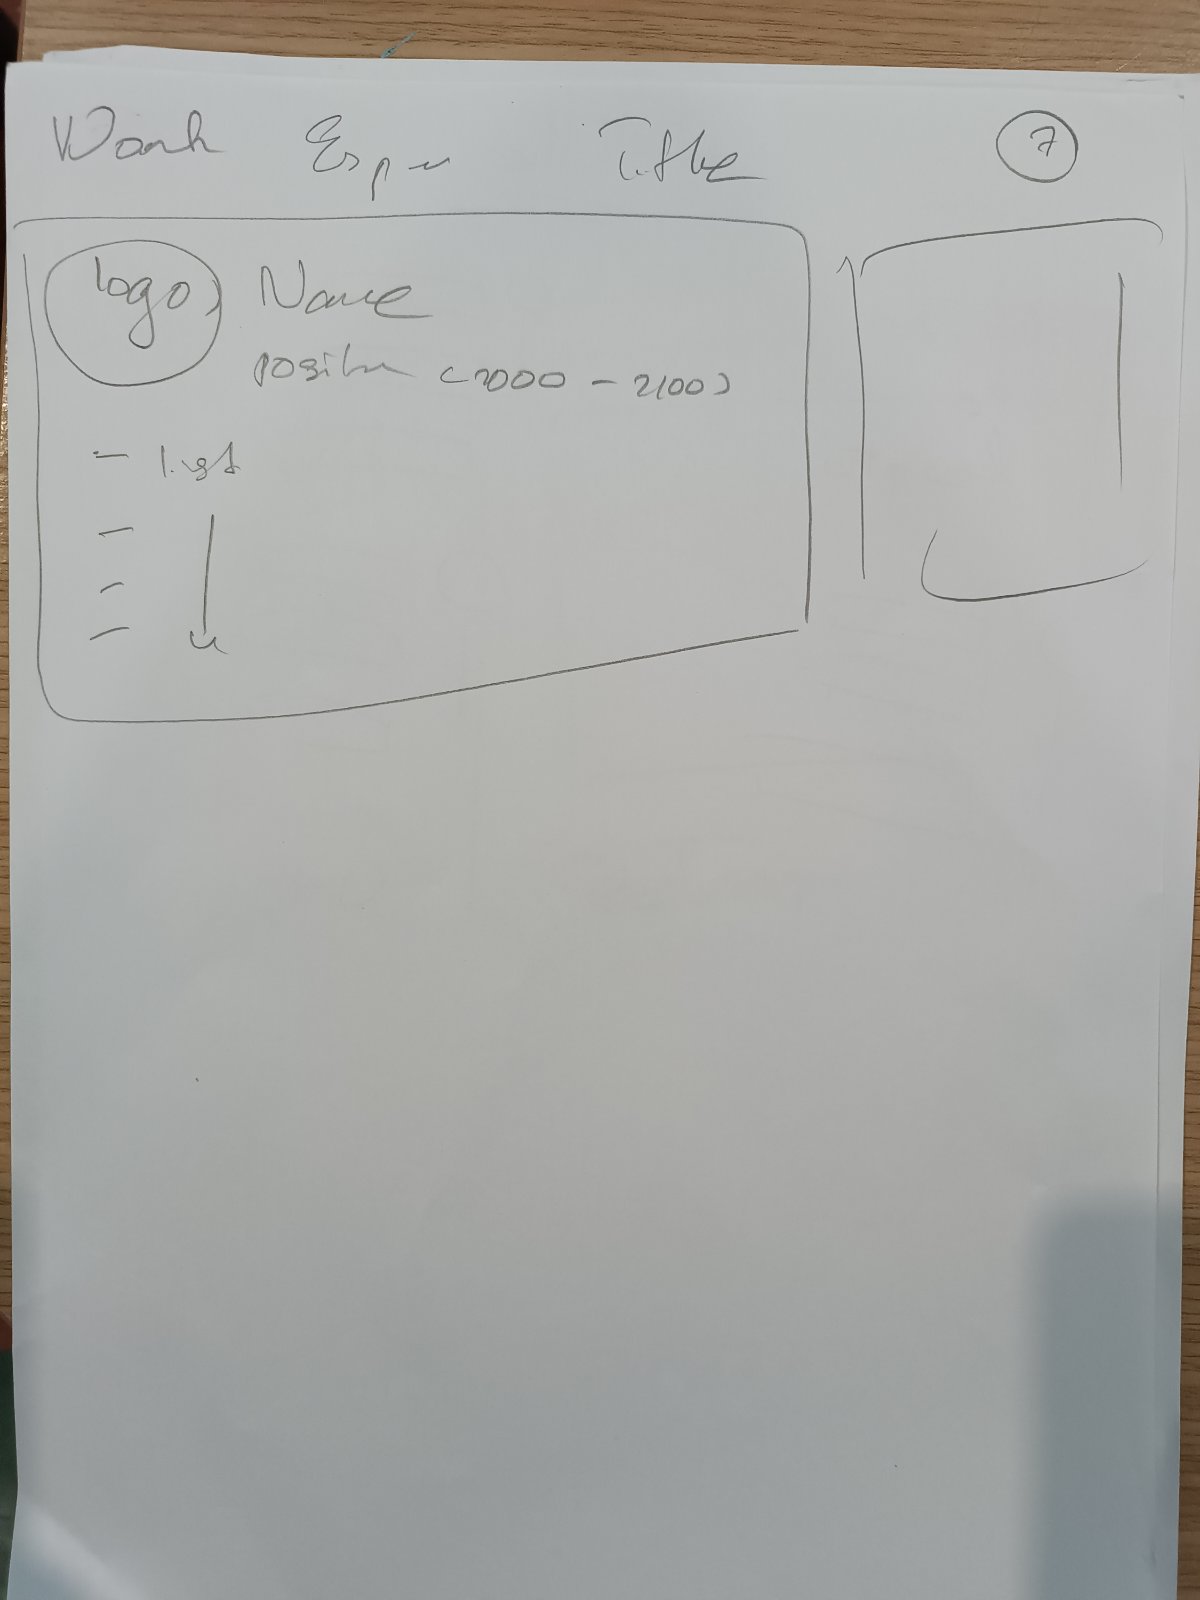 Work Expe Title 7
logo Name
position (2000 - 2100)
- list